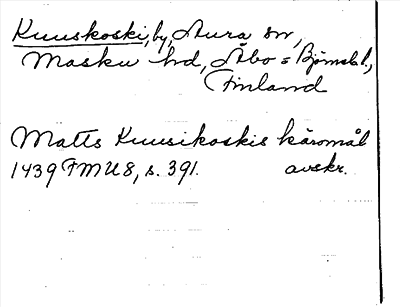 Kuuskoski, by, Aura sn,
Masku hd, Åbo = Björneb. l.,
Finland
Matts Kuusikoskis käromål
1439 FMU 8, s. 391. avskr.